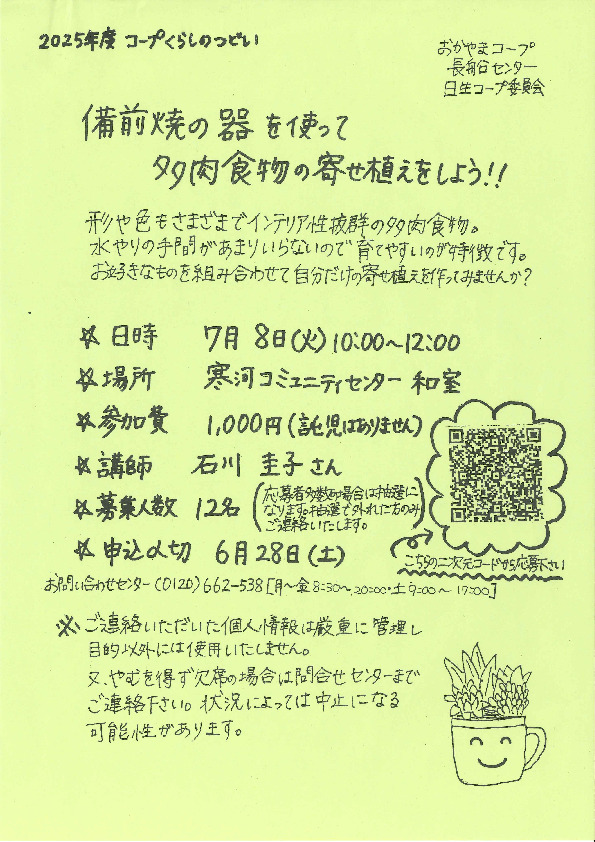 2025年度 コープくらしのつどい
おかやまコープ
長船センター
日生コープ委員会
備前焼の器を使って
多肉食物の寄せ植えをしよう!!
形や色もさまざまでインテリア性抜群の多肉食物。
水やりの手間があまりいらないので育てやすいのが特徴です。
お好きなものを組み合わせて自分だけの寄せ植えを作ってみませんか?
☆日時 7月8日(火)10:00~12:00
☆場所 寒河コミュニティセンター 和室
☆参加費 1,000円(託児はありません)
☆講師 石川 圭子さん
☆募集人数 12名(応募者多数の場合は抽選に
なります。抽選で外れた方のみ
ご連絡いたします。)
☆申込〆切 6月28日(土)
こちらの二次元コードから応募下さい
お問い合わせセンター(0120)662-538[月~金 8:30~20:00・土9:00~17:00]
※ご連絡いただいた個人情報は厳重に管理し
目的以外には使用いたしません。
又、やむを得ず欠席の場合は問合せセンターまで
ご連絡下さい。状況によっては中止になる
可能性があります。